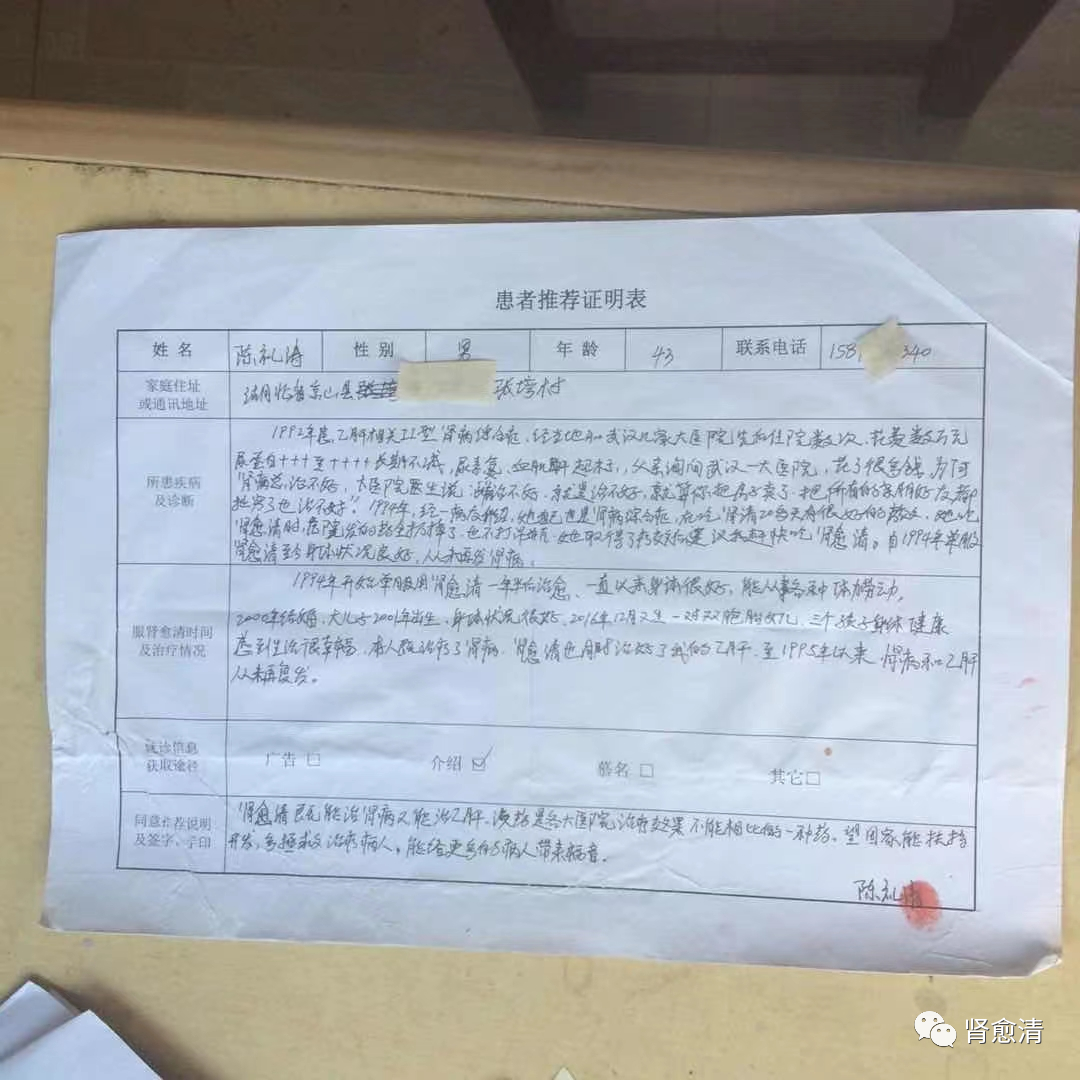 患者推荐证明表
姓 名 陈礼涛 性 别 男 年 龄 43 联系电话 158 340
家庭住址
或通讯地址
湖北省京山县 张塝村
所患疾病
及诊断
1992年患乙肝相关II型肾病综合症,经当地和武汉几家大医院先后住院数次,花费数万元
尿蛋白+++至++++长期不减,尿素氮、血肌酐起标,父亲询问武汉一大医院,花了很多钱,为何
肾病总治不好,大医院医生说:治不好,就是治不好,就算你把房子卖了,把所有的亲朋好友都
扯穷了也治不好"。1994年,经一病友介绍,她自己也是肾病综合症,在吃肾清20多天有很好的效果,她吃
肾愈清时,医院发的药全扔掉了,也不打 建议我赶快吃肾愈清。自1994年单服
肾愈清至今身体状况良好,从未再发肾病。
服肾愈清时间
及治疗情况
1994年开始单服用肾愈清一年半后治愈、一直以来身体很好,能从事各种体力劳动。
2000年结婚,大儿子2001年出生,身体状况很好,2016年12月又生一对双胞胎女儿,三个孩子身体健康
感到生活很幸福,本人既治疗了肾病,肾愈清也同时治好了我的乙肝,至1995年以来,肾病和乙肝
从未再复发。
就诊信息
获取途径
广告□ 介绍☑ 慕名□ 其它□
同意推荐说明
及签字、手印
肾愈清既能治肾病又能治乙肝、该药是各大医院治疗效果不能相比的一种药、望国家能扶持
开发,多拯救治疗病人,能给更多的病人带来福音。
陈礼涛
肾愈清